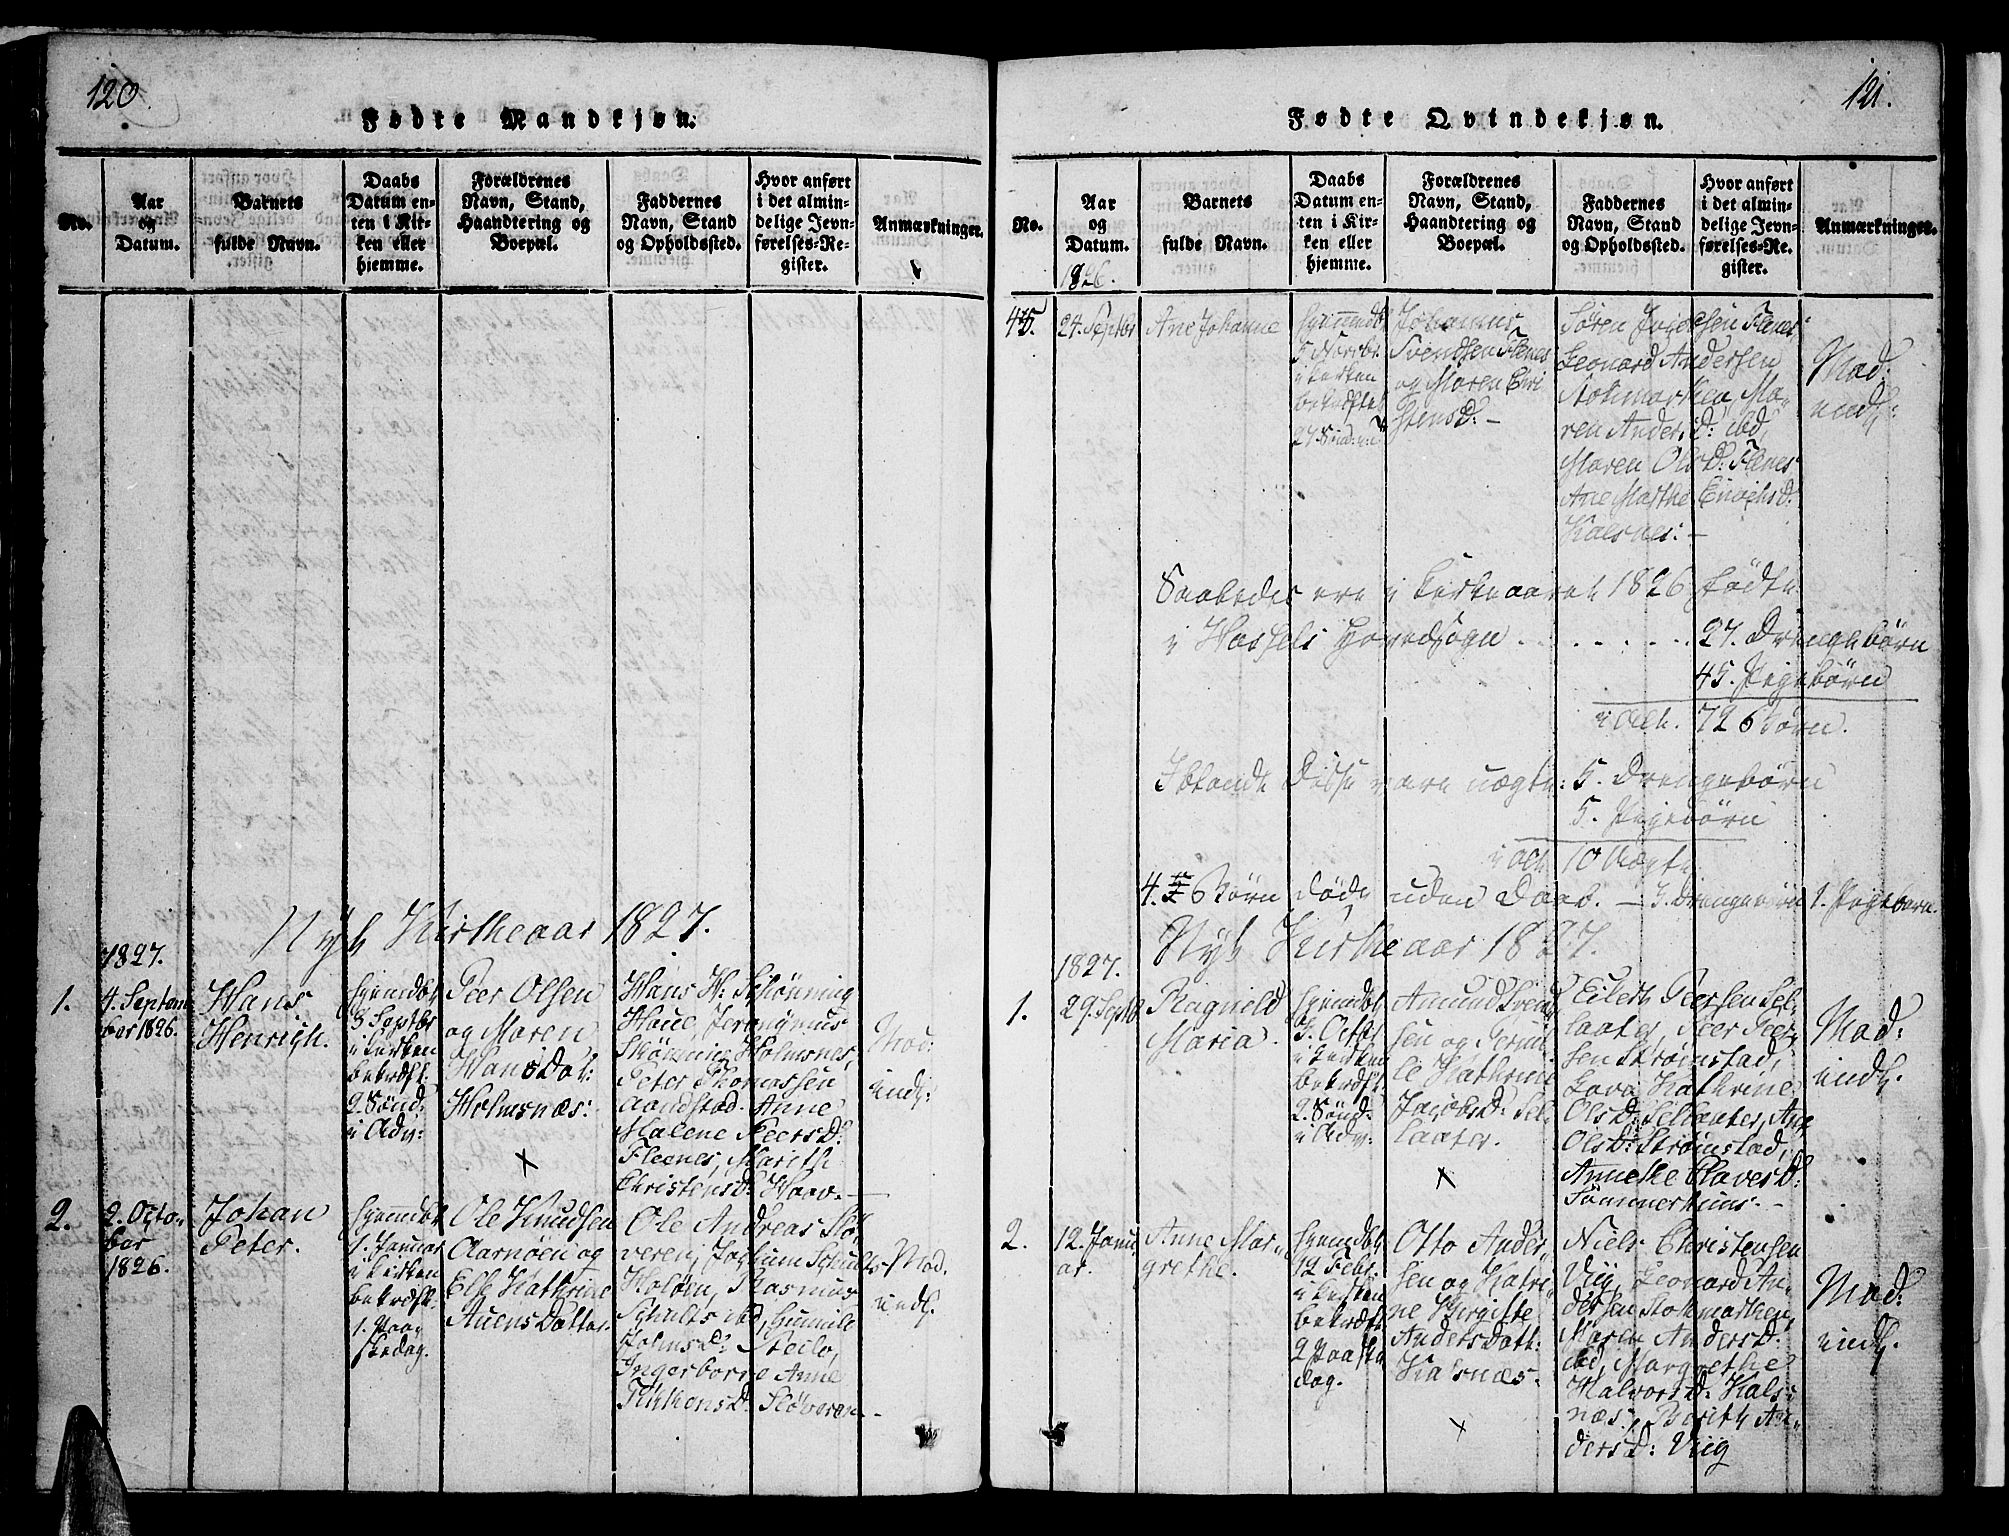 120.
Fødte Mandkjøn.
No.
Aar
og
Datum.
Barnets
fulde Navn.
Daabs
Datum en-
ten i Kir-
ken eller
hjemme.
Forældrenes
Navn, Stand,
Haandtering og
Boepæl.
Faddernes
Navn, Stand
og Opholdssted.
Hvor anført
i det almin-
delige Jevn-
førelses-Re-
gister.
Anmærkninger.
Nyt Kirkeaar 1827.
1827.
1.
4. Septem
ber 1826.
Hans
Henrich.
hjemdbt
8 Septbr
i kirken
bekræft.
2. Sønd:
i Adv:
Peer Olsen
og Maren
Hans Dat:
Holmsnæs:
Hans H: Schønning
Haue, Jeronymus
Schønning Holmsnes,
Peter Thomassen
Sandstad. Anne
Malene PeersD:
Fleenes, Marith
ChristensD: Haav.
Mod:
indl:
2.
2. Octo-
ber
1826.
Johan
Peter.
hjemdbt
1. Januar
i kirken
bekræft.
1. Paa-
skedag.
Ole Knudsen
Aarnøen og
Else Kathrine
Auens Datter
Ole Andreas Slø-
veren, Jochum Schults
Holøen, Rasmus
Schults ibd, Gunnild
JohnsD: Steilo,
Ingerborre Anne
D: Sløveren
Mod.
indl.
121.
Fødte Qvindekjøn.
No.
Aar
og
Datum.
1826.
Barnets
fulde Navn.
Daabs
Datum en-
ten i Kir-
ken eller
hjemme.
Forældrenes
Navn, Stand,
Haandtering og
Boepæl.
Faddernes
Navn, Stand
og Opholdssted.
Hvor anført
i det almin-
delige Jevn-
førelses-Re-
gister.
Anmærkninger.
45.
24. Septbr
Ane Johanne
hjemmdbt
5 Novbr.
i kirken
bekræftet
Johannes
Svendsen Flenes
og Maren Chri
stensD: -
Søren Flenes
Leonard Andersen
Stokmarken, Ma-
ren AndersD: ibd,
Maren OlsD: Flenes
Ane Marthe EnochsD:
Kalsnes: -
Mod:
indl:
Saaledes ere i Kirkeaaret 1826 fødte
i Hassels Hovedsogn . . . . . . . 27. Drengebørn
45. Pigebørn
i alt. 72 Børn.
Iblandt disse vare uægte: 5. Drengebørn
5. Pigebørn
i alt 10 Uægte
4. Børn døde uden Daab. - 3. Drengebørn 1. Pigebarn.
Nyt Kirkeaar 1827.
1827.
1.
29. Septbr
Ragnild
Maria.
hjemdbt
3. Octbr
i kirken
bekræft
2. Sønd:
i Adv:
Amund Svend
sen og Perni-
le Kathrine
JacobsD: Sel-
laater.
Eilert Peersen Sel-
laater, Peer Peer-
sen Strømstad,
Lava Kathrine
OlsD: Sellaater, Ane
OlsD: Strømstad,
Anneke ClavesD:
Tømmerhuus. -
Mod:
indl.
2.
12. Janu
ar.
Anne Mar-
grethe.
hjemdbt
12 Febr.
i kirken
bekræft
2 Paaske
dag.
Otto Ander-
sen og Katri-
ne Birgitte
Anders Datt:
Kalsnæs.
Niels Christensen
Viig, Leonard An-
dersen Stokmarken,
Maren AndersD:
ibd, Margrethe
HalvorsD: Kals-
næs, Berith An-
dersD: Viig
Mod:
indl.